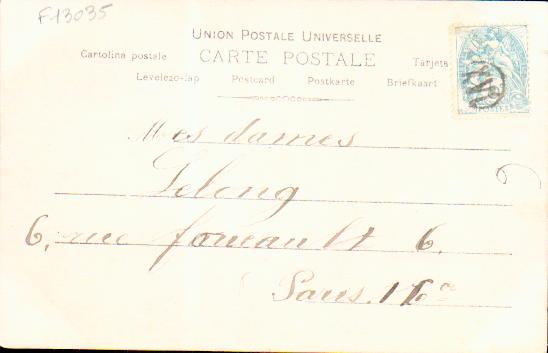 F13035
UNION POSTALE UNIVERSELLE
Cartolina postale CARTE POSTALE Tarjeta
Levelezo-lap Postcard Postkarte Briefkaart
Mesdames
Lelong
6, rue 6.
Paris. 16